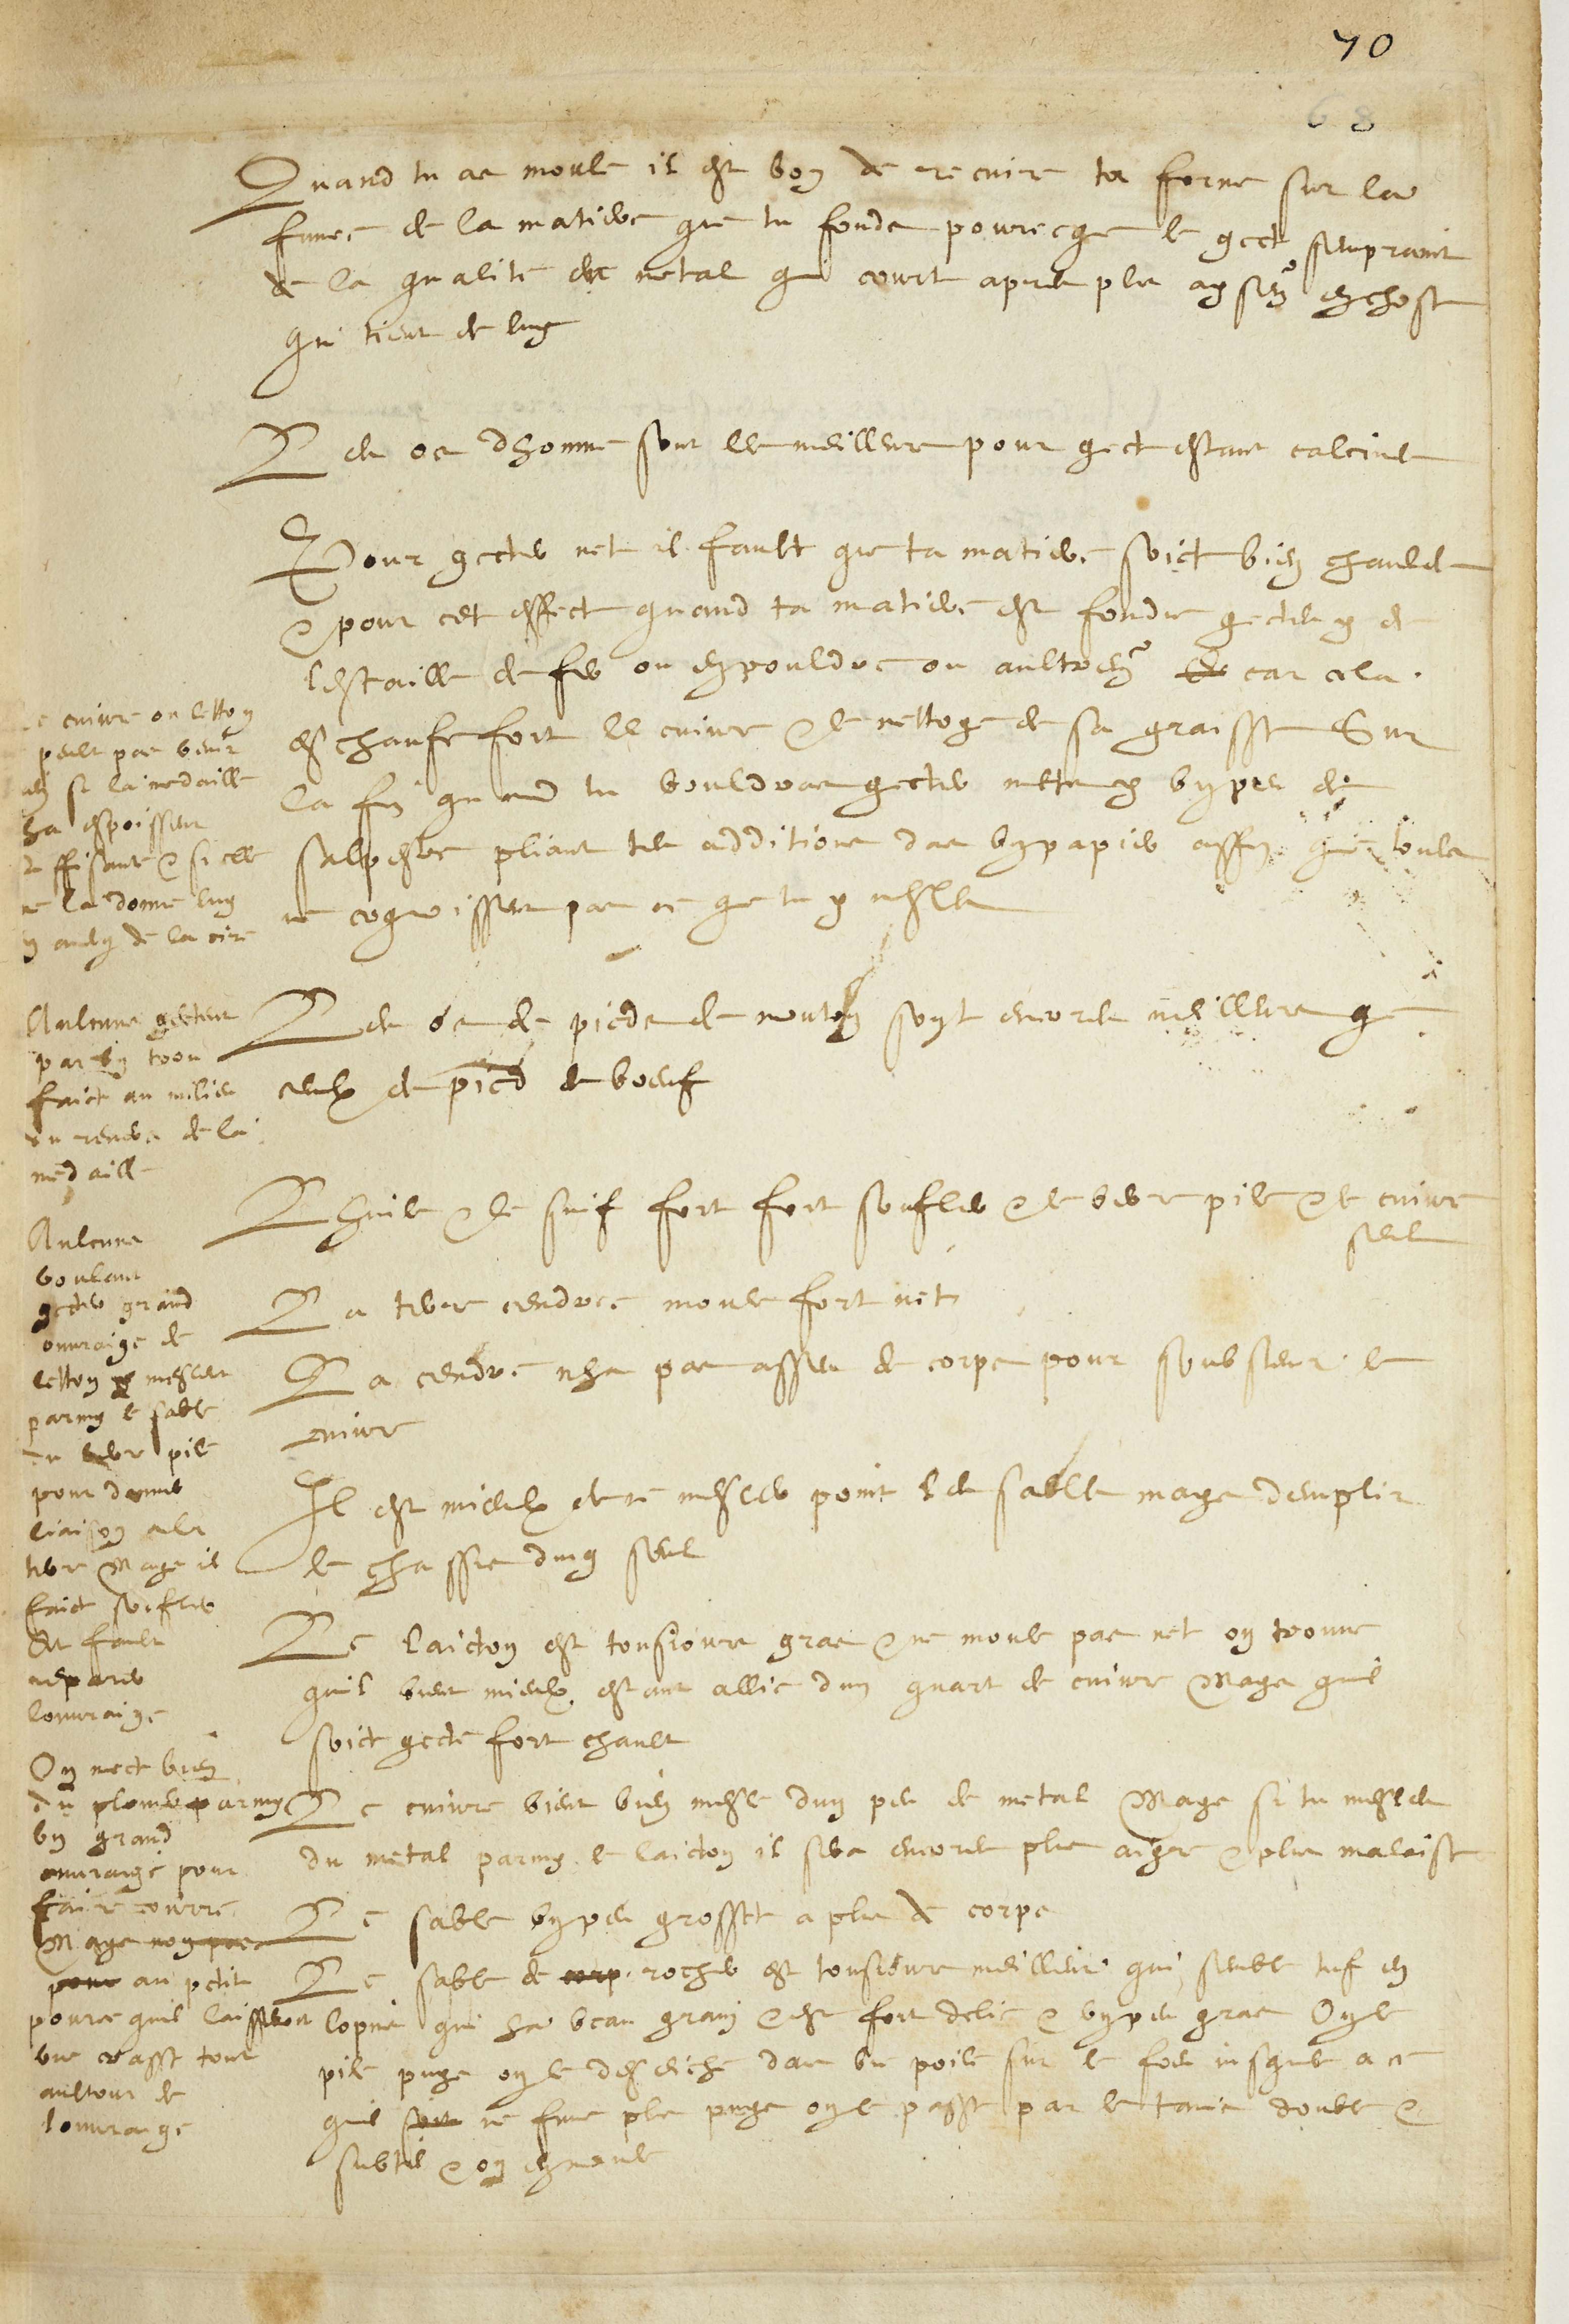 70
68
Quand tu as moule il est bon de recuire ta forme sur la
fumee de la matiere que tu fonds pource que le gect sempraint
de la qualite du metal qui court apres plus aysem{ent} en chose
qui tient de luy
Les os dhomme sont les meilleurs pour gect estant calcines
Pour gecter net il fault que ta matiere soict bien chaulde
& pour cet effect quand ta matiere est fondue gectes y de
lescaille de fer ou en pouldre ou aultrem{ent} car cela
eschaufe fort le cuivre & le nettoye de sa graisse Sur
la fin quand tu vouldras gecter mets y un peu de
salpestre pliant tes additions dans un papier affin que touts
ne cognoissent pas ce que tu y mesles
Les os de pieds de mouton sont encores meilleurs que
ceulx de pied de boeuf
Lhuile & le suif fort fort soufler & le verre pile & le cuivre
seul
La terre cendree moule fort net
La cendre nha pas asses de corps pour soubstenir le
cuivre
Il est mieulx de ne mesler point les sables mays demplir
le chassis dung seul
Le laicton est tousjours gras & ne moule pas net on trouve
quil vient mieulx estant allie dun quart de cuivre Mays quil
soict gecte fort chault
Le cuivre vient bien mesle dun peu de metal Mays si tu mesles
du metal parmy le laicton il sera encores plus aigre & plus malaise
Le sable un peu grosset a plus de corps
Le sable de rocher est tousjours meilleur qui semble tuf en
lopin qui ha beau grain & est fort delie & un peu gras On le
pile puys on le deseiche dans une poile sur le feu jusques a ce
quil ne fume plus puys on le passe par le tamis double &
subtil & on en moule
Le cuivre ou letton
peult pas venir
bien si la medaille
ha espoisseur
suffisante & si elle
ne la donne luy
y avecq de la cire
Aulcuns gectent
par un trou
faict au milieu
du revers de la
medaille
Aulcuns
voulant
gecter grand
ouvraige de
letton meslent
parmy le sable
du verre pile
pour donner
liaison a la
terre Mays il
faict soufler
Et fault
reparer
louvraige
On mect bien
du plomb parmy
un grand
ouvraige pour
faire courre
Mays non pas
pour au petit
pource quil laisseroit
une crasse tout
aultour de
louvraige